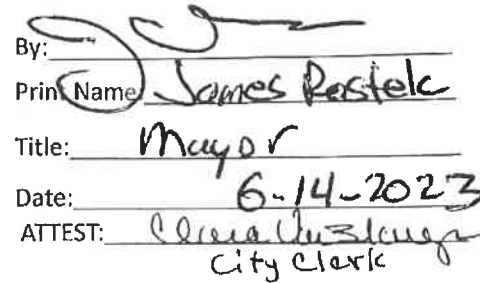 By:
Print Name James Pastek
Title: Mayor
Date: 6-14-2023
ATTEST:
City Clerk